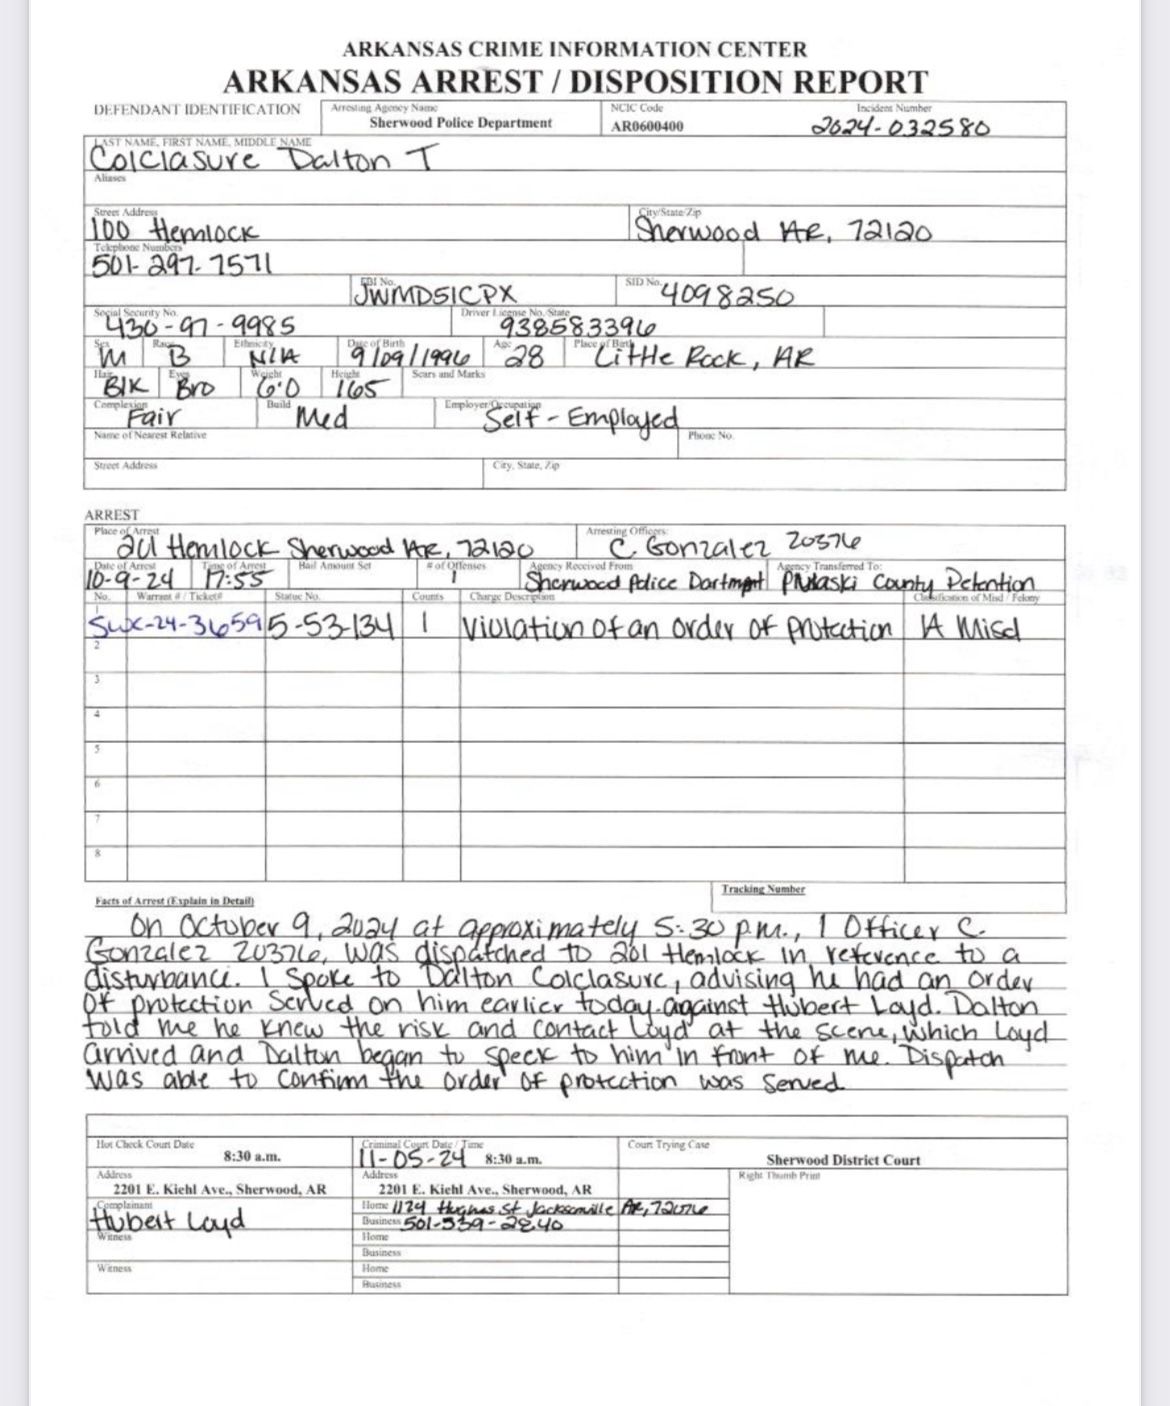 ARKANSAS CRIME INFORMATION CENTER
ARKANSAS ARREST / DISPOSITION REPORT
DEFENDANT IDENTIFICATION Arresting Agency Name NCIC Code Incident Number
Sherwood Police Department AR0600400 2024-032580
LAST NAME, FIRST NAME, MIDDLE NAME
Colclasure Dalton T
Aliases
Street Address City/State/Zip
100 Hemlock Sherwood AR, 72120
Telephone Numbers
501-297-7571
FBI No. SID No.
JWMD51CPX 4098250
Social Security No. Driver License No./State
430-97-9985 938583396
Sex Race Ethnicity Date of Birth Age Place of Birth
M B N/A 9/09/1996 28 Little Rock, AR
Hair Eyes Weight Height Scars and Marks
Blk Bro 6'0 165
Complexion Build Employer/Occupation
Fair Med Self-Employed
Name of Nearest Relative Phone No.
Street Address City, State, Zip
ARREST
Place of Arrest Arresting Officers:
201 Hemlock Sherwood AR, 72120 C. Gonzalez 20376
Date of Arrest Time of Arrest Bail Amount Set # of Offenses Agency Received From Agency Transferred To:
10-9-24 17:55 1 Sherwood Police Dartmpt Pulaski County Detention
No. Warrant # / Ticket# Statue No. Counts Charge Description Classification of Misd / Felony
1 SWC-24-3659 5-53-134 1 Violation of an order of protection A Misd
2
3
4
5
6
7
8
Tracking Number
Facts of Arrest (Explain in Detail)
On October 9, 2024 at approximately 5:30 p.m., I Officer C.
Gonzalez 20376, was dispatched to 201 Hemlock in reference to a
disturbance. I spoke to Dalton Colclasure, advising he had an order
of protection served on him earlier today against Hubert Loyd. Dalton
told me he knew the risk and contact Loyd at the scene, which Loyd
arrived and Dalton began to speek to him in front of me. Dispatch
was able to confirm the order of protection was served
Hot Check Court Date Criminal Court Date / Time Court Trying Case
8:30 a.m. 11-05-24 8:30 a.m. Sherwood District Court
Address Address Right Thumb Print
2201 E. Kiehl Ave., Sherwood, AR 2201 E. Kiehl Ave., Sherwood, AR
Complainant Home 1124 Hughes St Jacksonville AR, 72076
Hubert Loyd Business 501-539-2840
Witness Home
Business
Witness Home
Business